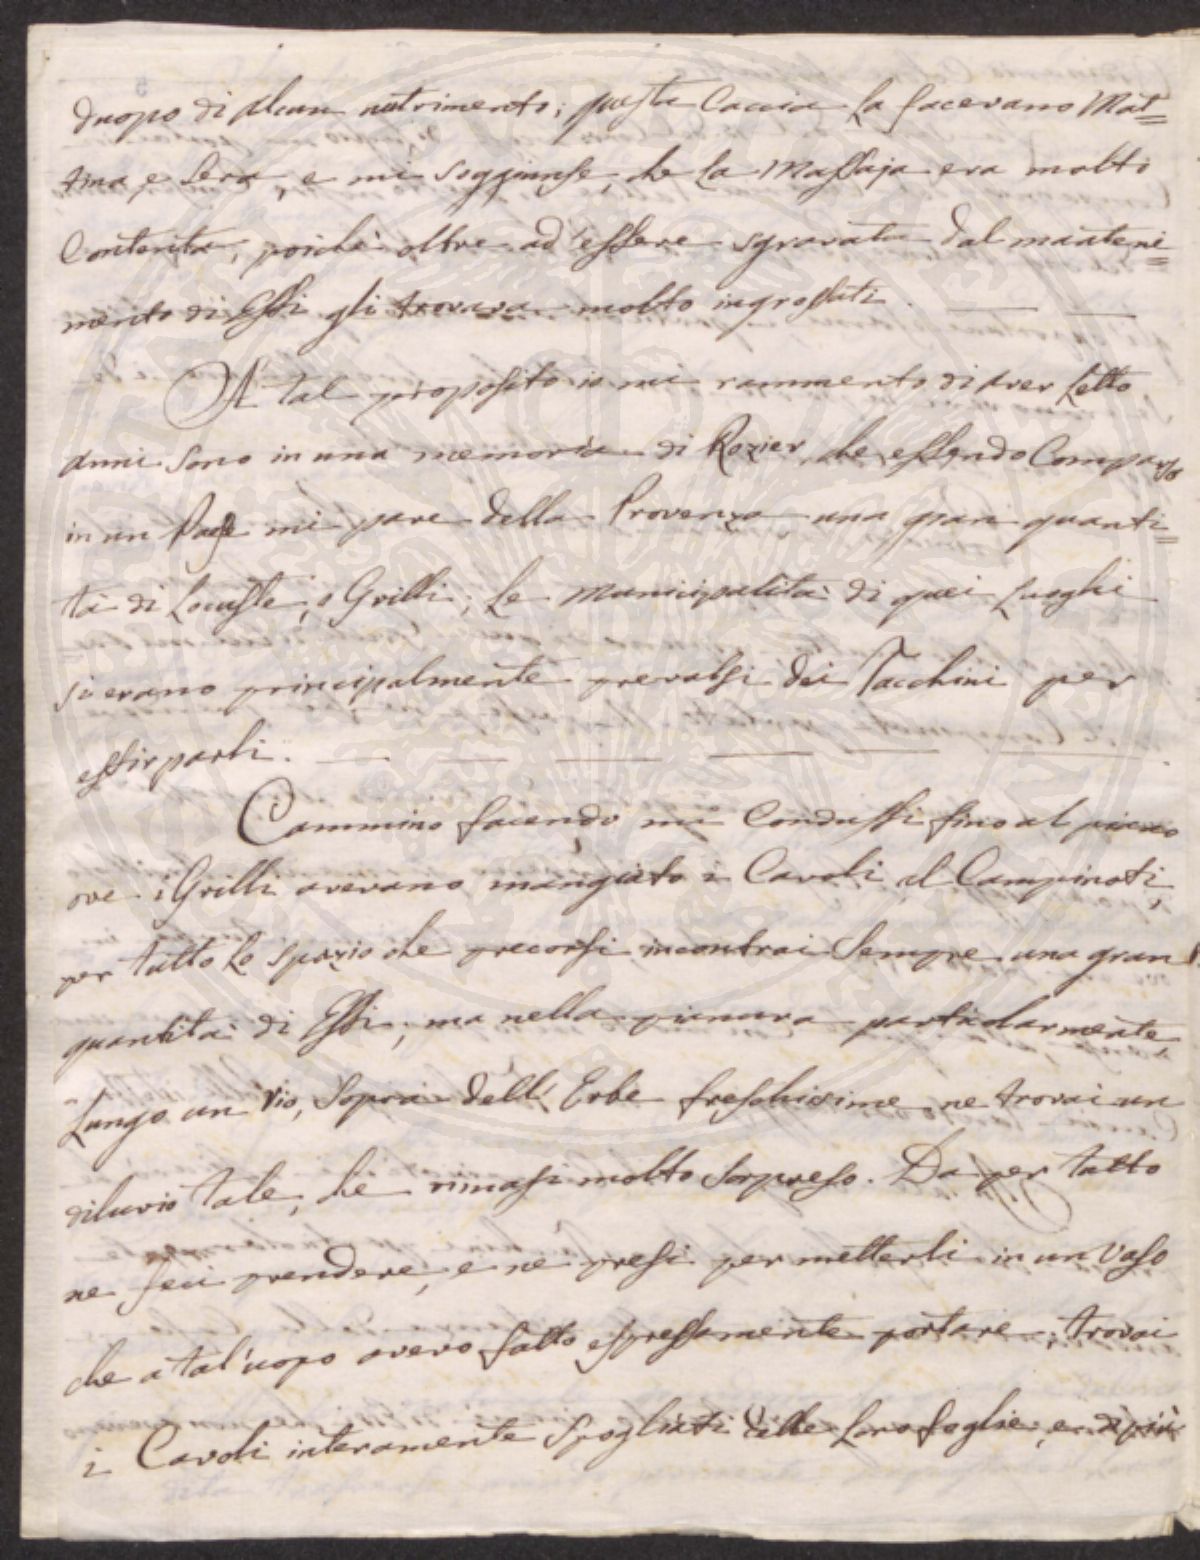 duopo di alcun nutrimento; questa Caccia la facevano Mat=
tina, e Sera, e mi soggiunse, che la Massaja era molto
Contenta, poiche oltre ad essere sgravata dal manteni=
mento di Essi gli trovava molto ingrossati.
A tal proposito io mi rammento di aver letto
anni sono in una memoria di Rozier, che essendo Comparso
in un Paese mi pare della Provenza una gran quanti=
tà di Locuste, o Grilli; le Municipalità di quei luoghi
si erano principalmente prevalsi dei Tacchini per
estirparli.
Cammino facendo mi Condussi fino al piano
ove i Grilli avevano mangiato i Cavoli al Campinoti,
per tutto lo spazio che precorsi incontrai Sempre una gran
quantità di Essi; ma nella pianura particolarmente
Lungo un rio, Sopra dell' Erbe freschissime ne trovai un
diluvio tale, che rimasi molto Sorpreso. Da per tutto
ne feci prendere, e ne presi per metterli in un Vaso
che a tal'uopo avevo fatto espressamente portare; trovai
i Cavoli interamente Spogliati delle Loro foglie, e di più